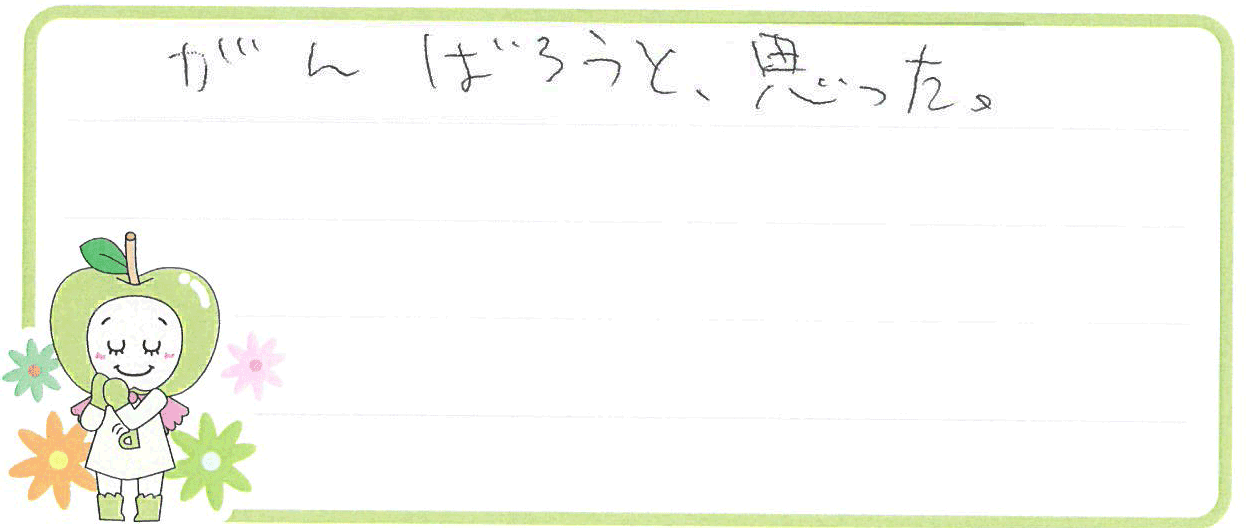 がんばろうと、思った。